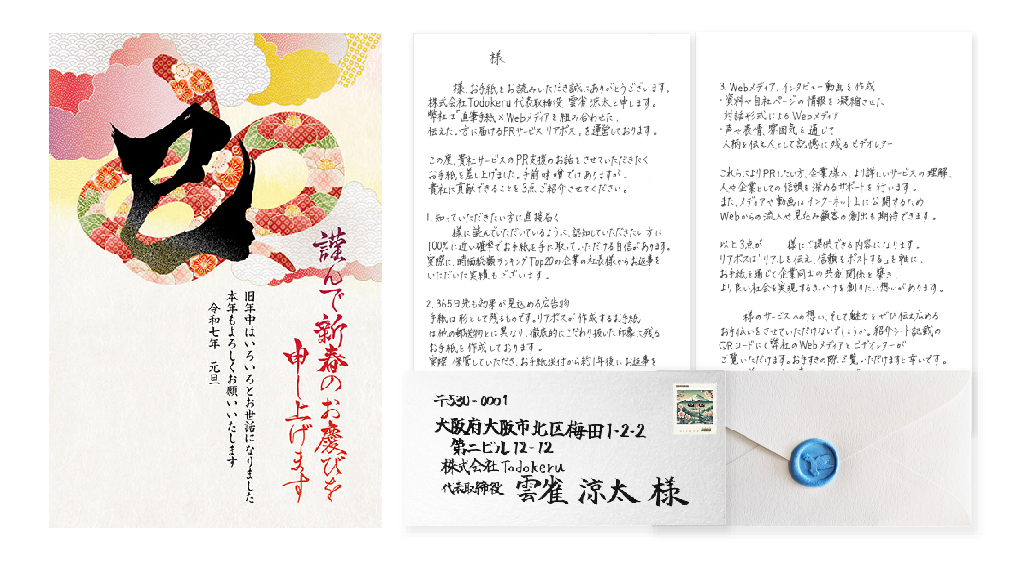 巳
謹んで新春のお慶びを
申し上げます
旧年中はいろいろとお世話になりました
本年もまろしくお願いいたします
令和七年 元旦
様
様、お手紙をお読みいただき誠にありがとうございます。
株式会社Todokeru 代表取締役 雲雀 涼太と申します。
弊社は"直筆手紙×Webメディアを組み合わせた、
伝えたい方に届けるPRサービス リアポス"を運営しております。
この度、貴社サービスのPR支援のお話をさせていただきたく
お手紙を差し上げました。手前味噌ではありますが、
貴社に貢献できることを3点、ご紹介させてください。
1. 知っていただきたい方に直接届く
様に読んでいただいているように、認知していただきたい方に
100%に近い確率でお手紙を手に取っていただける自信があります。
実際に、時価総額ランキングTop20の企業の社長様からお返事を
いただいた実績もございます。
2. 365日先も効果が見込める広告物
手紙は形として残るものです。リアポスが作成するお手紙
は他の郵送物とは異なり、徹底的にこだわり抜いた印象に残る
お手紙を作成しております。
実際に保管していただき、お手紙送付から約1年後にお返事を
3. Webメディア、インタビュー動画を作成
・資料や自社ページの情報を凝縮させた、
対話形式によるWebメディア
・声や表情、雰囲気を通じて
人柄を伝え人として記憶に残るビデオレター
これらによりPRしたい方、企業様へ、より詳しいサービスの理解、
人や企業としての信頼を深めるサポートを行います。
また、メディアや動画はインターネット上に公開するため
Webからの流入や見込み顧客の創出も期待できます。
以上3点が 様にご提供できる内容になります。
リアポスは「リアルを伝え、信頼をポストする」を軸に、
お手紙を通じて企業同士の共創関係を築き、
より良い社会を実現するきっかけを創りたい想いがあります。
様のサービスへの想い、そして魅力をぜひ伝え広める
お手伝いをさせていただけないでしょうか。紹介シート記載の
QRコードにて弊社のWebメディアとビデオレターが
ご覧いただけます。お手すきの際、ご覧いただけますと幸いです。
〒530-0001
大阪府大阪市北区梅田1-2-2
第二ビル12-12
株式会社Todokeru
代表取締役 雲雀 涼太 様